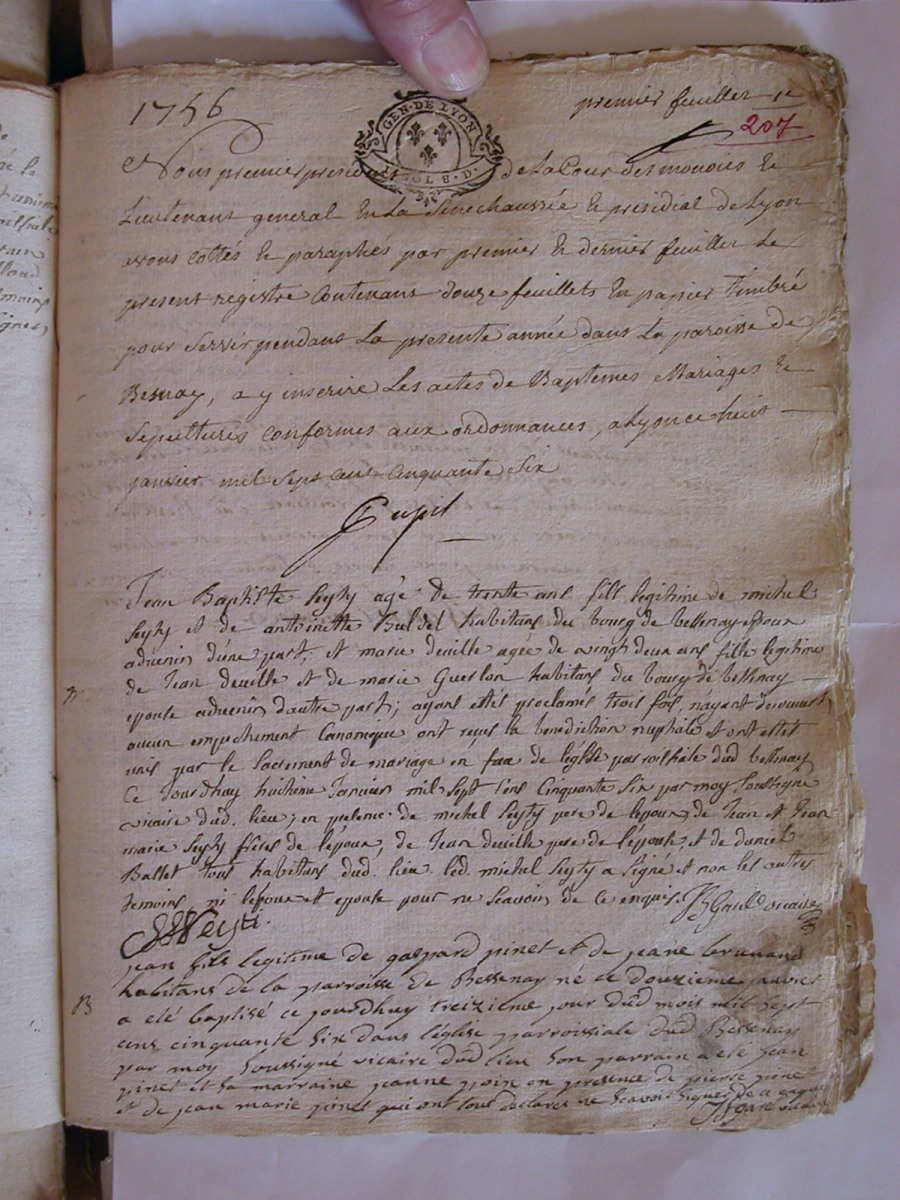 1756
premier feuillet
207
GEN · DE LYON
SOLS · D ·
Nous premier presid de La Cour des monoies Et
Lieutenant general En La Senechaussée & presidial de Lyon
avons cottés & paraphés par premier & dernier feuillet Le
present registre Contenant douze feuillets En papier Timbré
pour Servir pendant La presente année dans La paroisse de
Besnay, a y inscrire Les actes de Baptemes Mariages &
Sepultures conformes aux ordonnances, a Lyon ce huit
janvier mil sept cent Cinquante Six
Pupil
Jean Baptiste Seyty agé de trente ans fils legitime de michel
Seyty et de antoinette habitans du bourg de bessenay epoux
advenir d'une part, et marie deville agée de vingt deux ans fille legitime
de Jean deville et de marie Guerlon habitans du bourg de bessenay
epouse advenir d'autre part; ayant estés proclamés trois fois, n'ayant decouvert
aucun empechement Canonique ont reçus la benediction nuptiale et ont estés
unis par le Sacrement de mariage en face de l'église parroissiale dud bessenay
Ce Jourdhuy huitieme Janvier mil Sept Cent Cinquante Six par moy Soussigné
vicaire dud. lieu; en presence de michel Seyty pere de lepoux de Jean et Jean
marie Seyty freres de l'epoux, de Jean deville pere de l'epouse, et de daniel
Ballet tous habitans dud. lieu led. michel Seyty a Signé et non les autres
temoins, ni lepoux et epouse pour ne Scavoir de ce enquis. JB Gaul vicaire
Seyti.
jean fils legitime de gaspard pinet et de jeane brunand
B
habitans de la parroisse de Bessenay né le douzieme janvier
a été baptisé ce jourdhuy treizieme jour dud mois mil sept
cens cinquante six dans l'église parroissiale dud Bessenay
par moy soussigné vicaire dud lieu son parrain a été jean
pinet et sa marraine jeanne poin en presence de pierre pine
et de jean marie pinet qui ont tous declarés ne scavoir signer de ce enquis